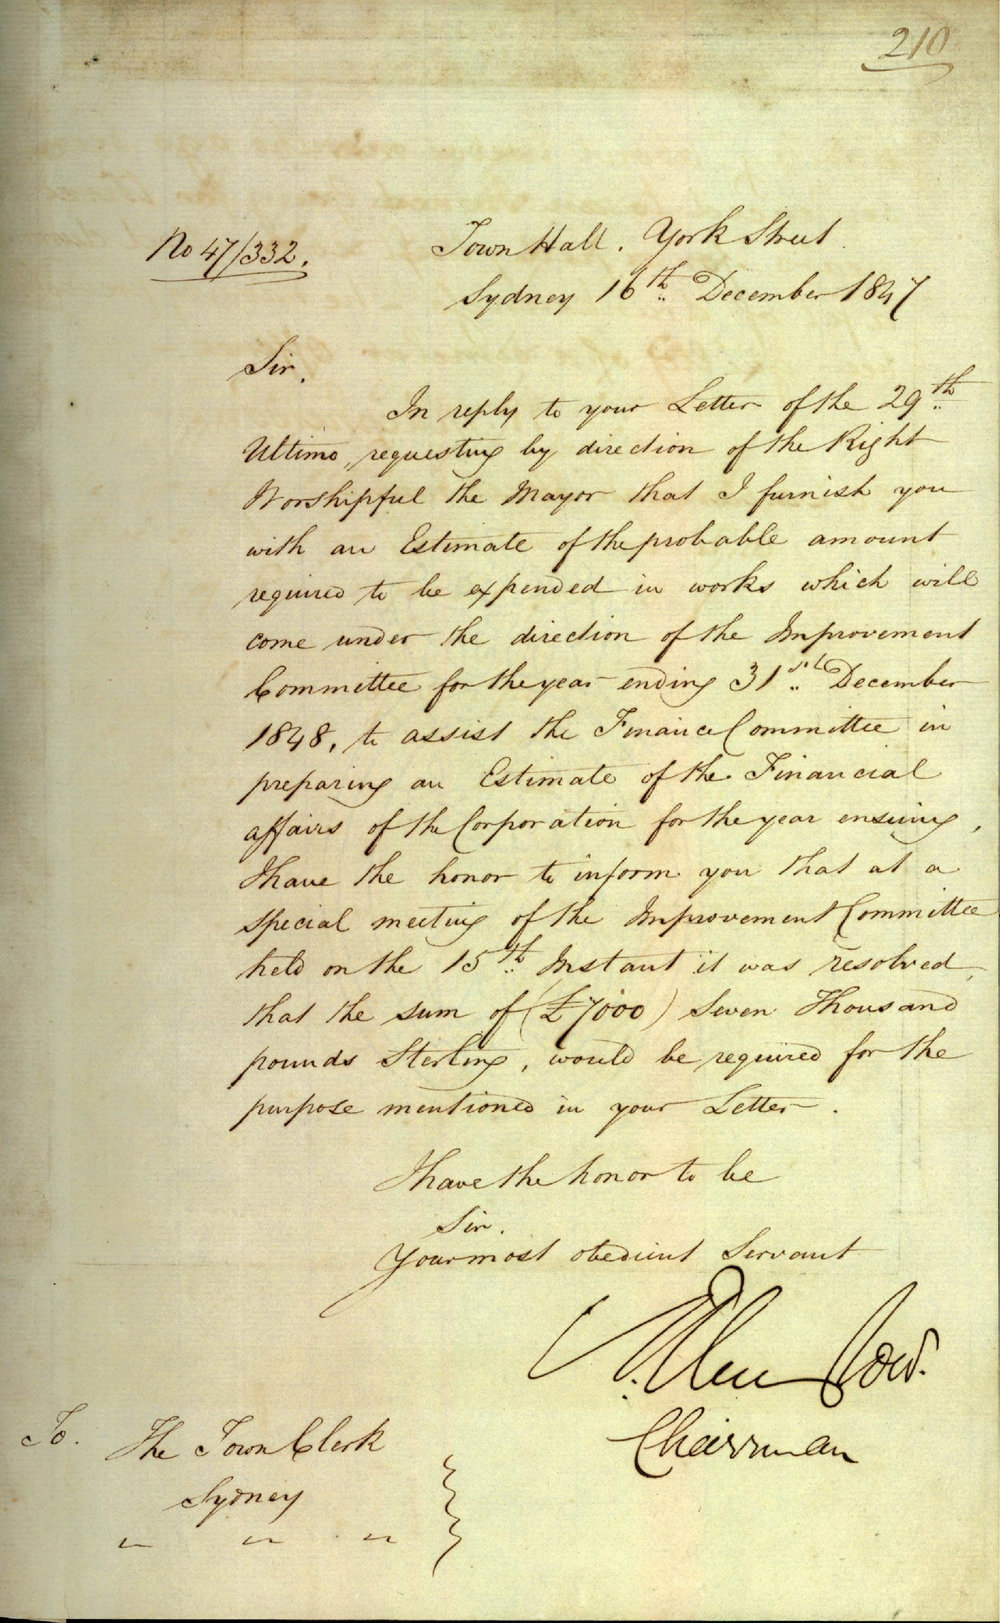 210
No 47/332.
Town Hall. York Street.
Sydney 16th December 1847
Sir,
In reply to your Letter of the 29th
Ultimo, requesting by direction of the Right
Worshipful the Mayor that I furnish you
with an Estimate of the probable amount
required to be expended in works which will
come under the direction of the Improvement
Committee for the year ending 31st December
1848, to assist the Finance Committee in
preparing an Estimate of the Financial
affairs of the Corporation for the year ensuing,
I have the honor to inform you that at a
special meeting of the Improvement Committee
held on the 15th Instant it was resolved,
that the sum of (£7000) Seven Thousand
pounds Sterling, would be required for the
purpose mentioned in your Letter.
I have the honor to be
Sir.
Your most obedient Servant
Chairman
To. The Town Clerk
Sydney